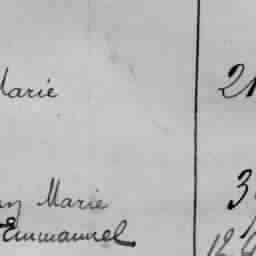 Marie 21
Marie 3
Emmanuel 12